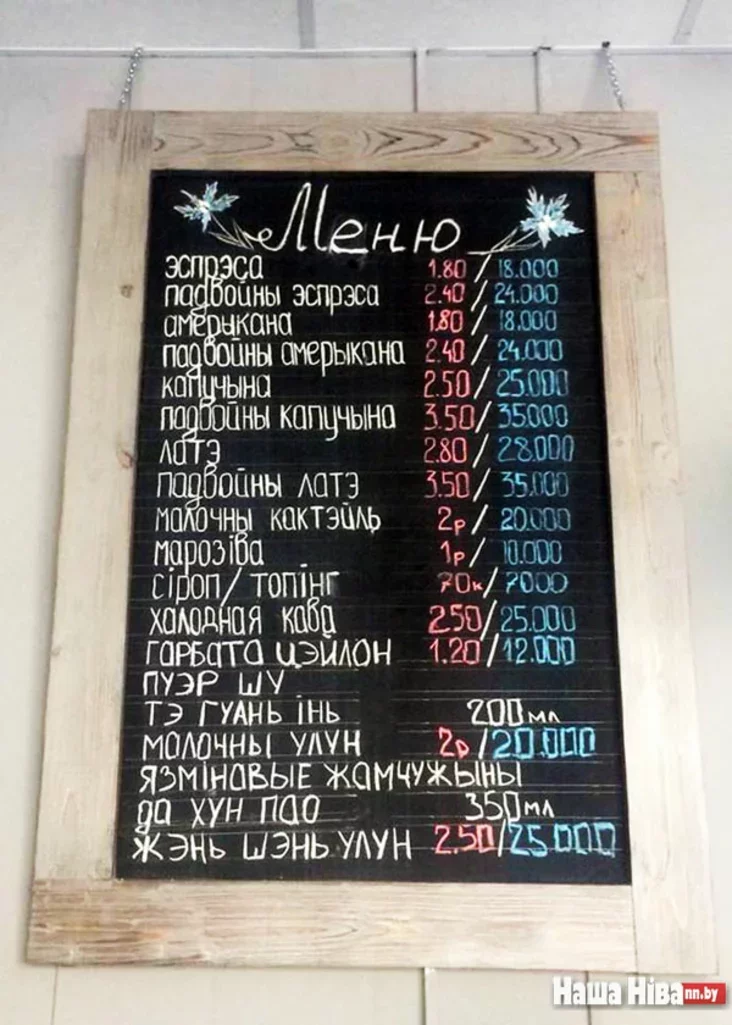 Меню
эспрэса 1.80/18.000
падвойны эспрэса 2.40/24.000
амерыкана 1.80/18.000
падвойны амерыкана 2.40/24.000
капучына 2.50/25.000
падвойны капучына 3.50/35.000
латэ 2.80/28.000
падвойны латэ 3.50/35.000
малочны кактэйль 2р/20.000
марозіва 1р/10.000
сіроп/топінг 70к/7000
халодная кава 2.50/25.000
гарбата цэйлон 1.20/12.000
пуэр шу
тэ гуань інь 200мл
малочны улун 2р/20.000
язмінавые жамчужыны
да хун пао 350мл
жэнь шэнь улун 2.50/25.000
Наша Ніва nn.by